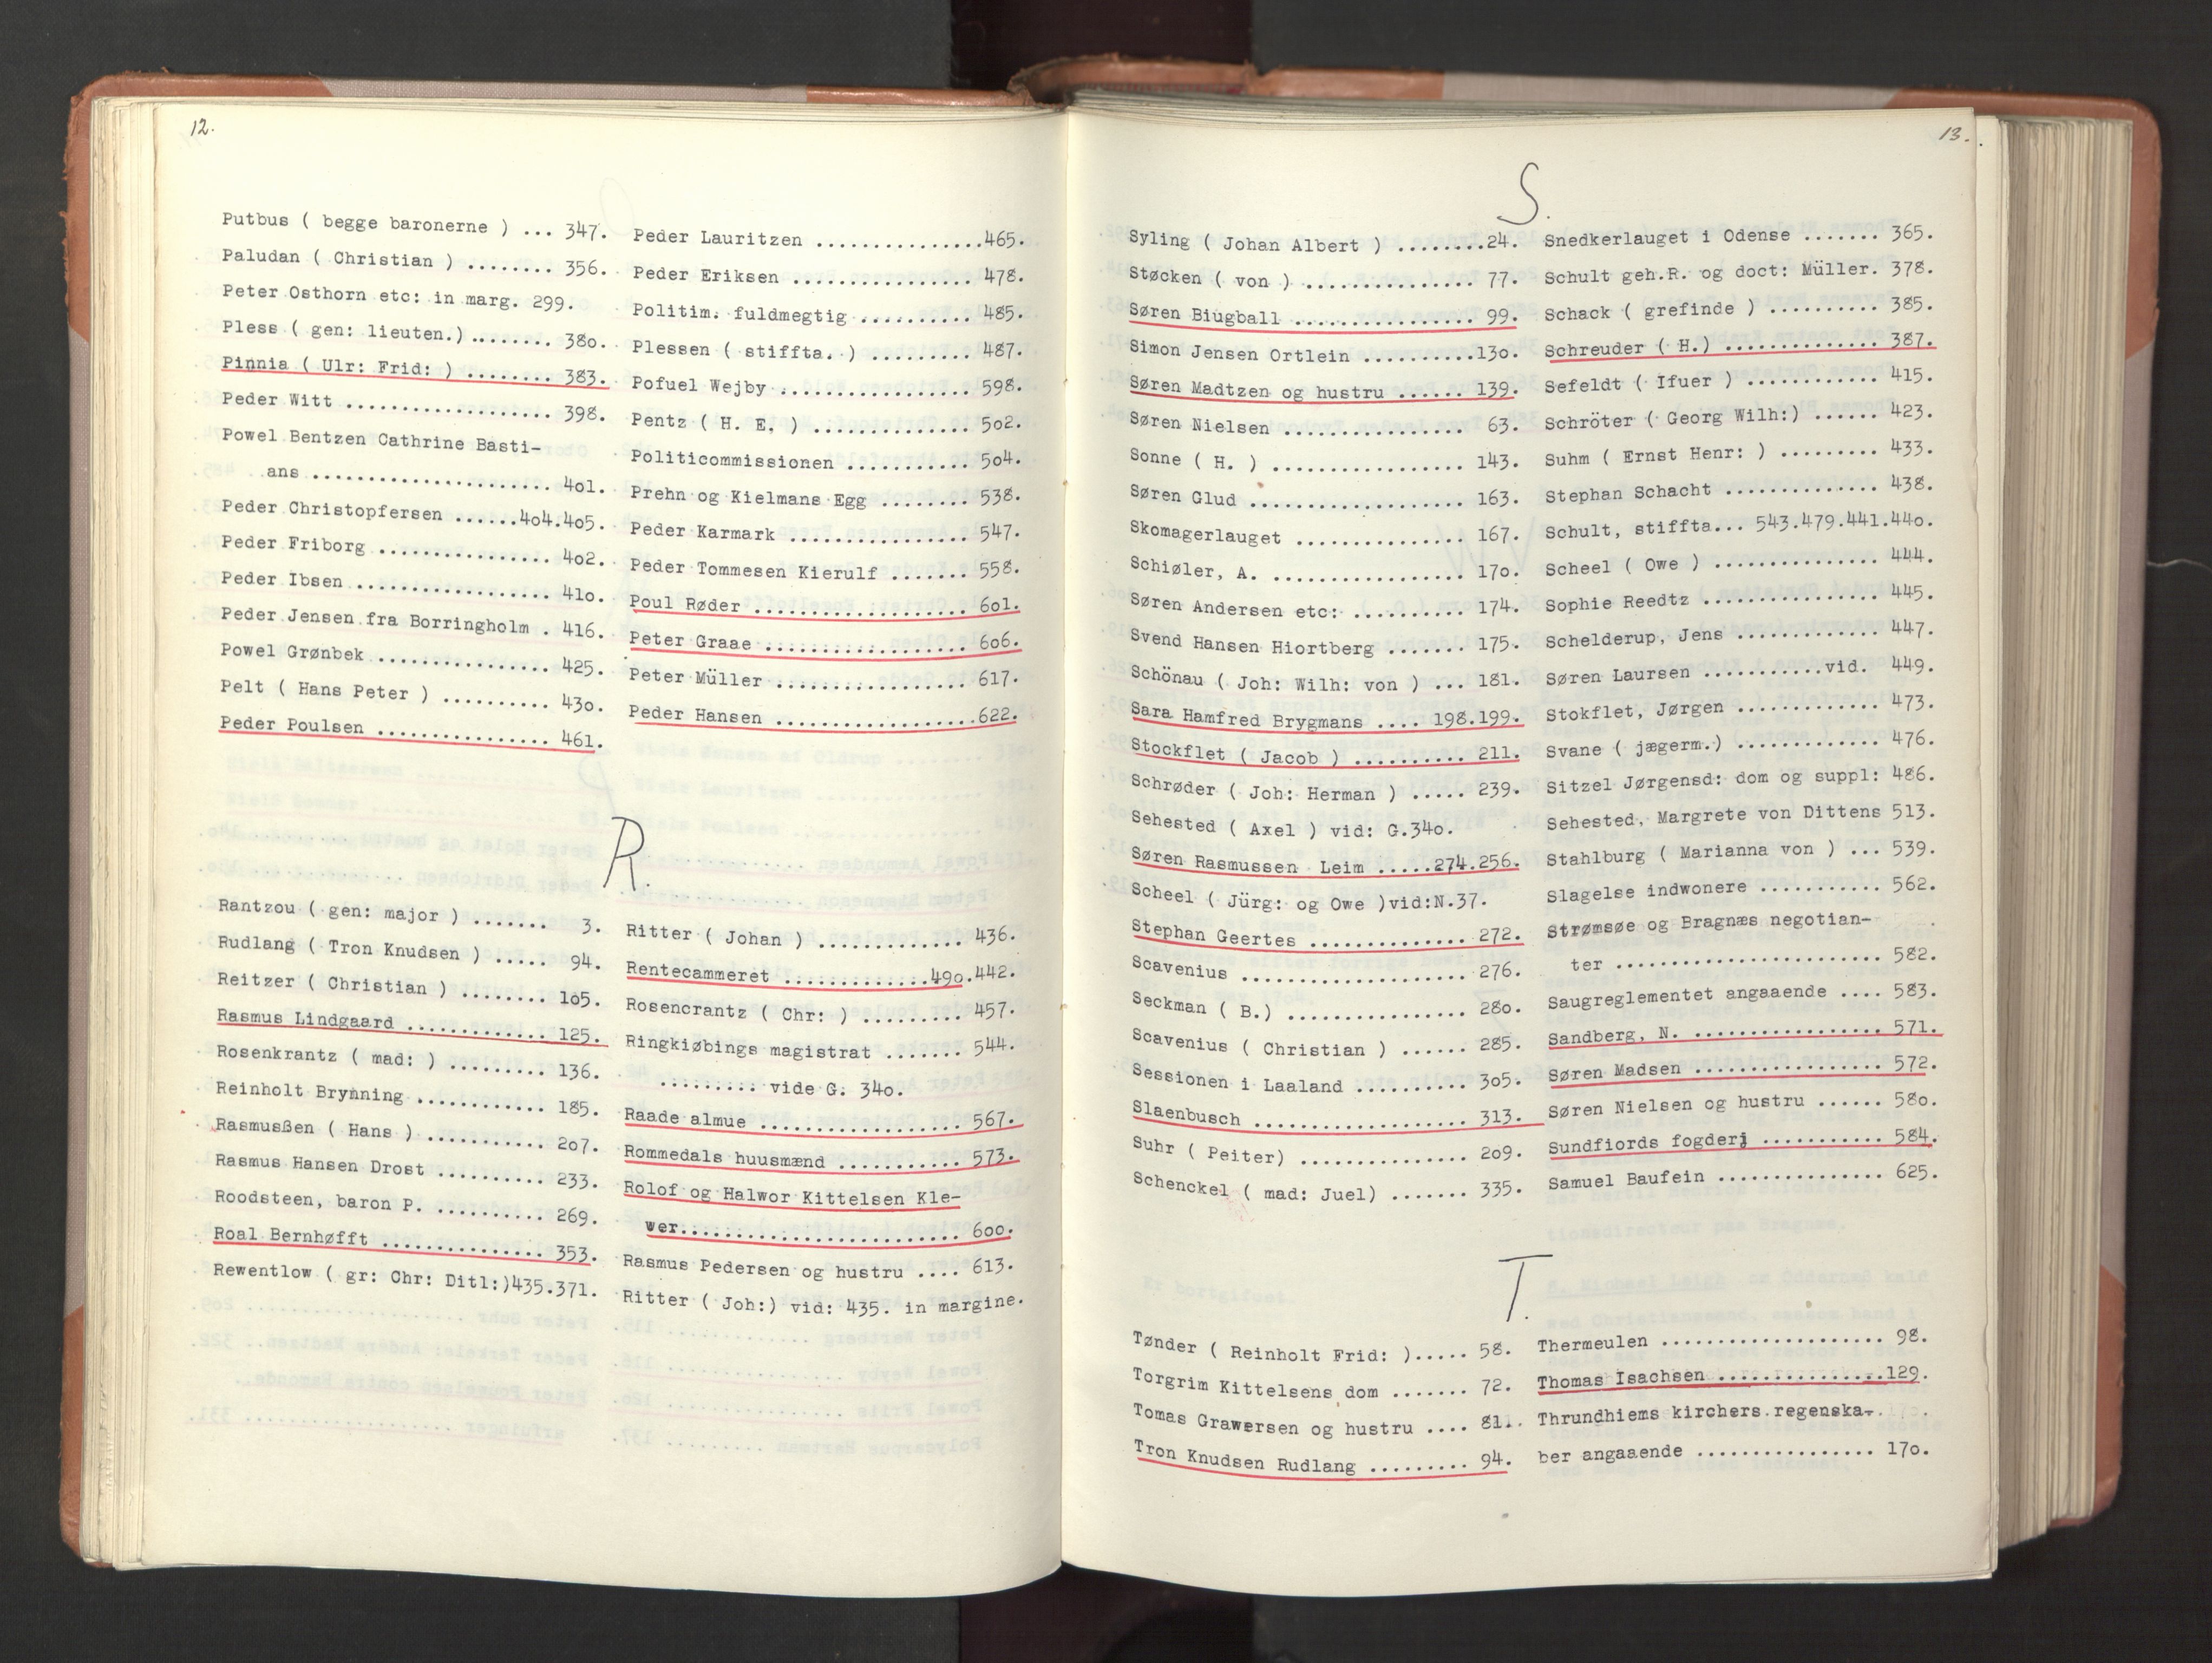 12.
Putbus ( begge baronerne ) ... 347.
Paludan ( Christian ) ........ 356.
Peter Osthorn etc: in marg. 299.
Pless ( gen: lieuten.)........ 38o.
Pinnia ( Ulr: Frid: ) ........ 383.
Peder Witt ................... 398.
Powel Bentzen Cathrine Basti-
ans ...................... 4o1.
Peder Christopfersen ......4o4.4o5.
Peder Friborg ................ 4o2.
Peder Ibsen .................. 41o.
Peder Jensen fra Borringholm . 416.
Powel Grønbek ................ 425.
Pelt ( Hans Peter ) .......... 43o.
Peder Poulsen ................ 461.
Peder Lauritzen ...............465.
Peder Eriksen ................ 478.
Politim. fuldmegtig .......... 485.
Plessen ( stiffta. ) ......... 487.
Pofuel Wejby ................. 598.
Pentz ( H. E. ) .............. 5o2.
Politicommissionen ........... 5o4.
Prehn og Kielmans Egg ........ 538.
Peder Karmark ................ 547.
Peder Tommesen Kierulf ....... 558.
Poul Røder ................... 6o1.
Peter Graae .................. 6o6.
Peter Müller ................. 617.
Peder Hansen ..................622.
R.
Rantzou ( gen: major ) ....... 3.
Rudlang ( Tron Knudsen ) ..... 94.
Reitzer ( Christian ) ........ 1o5.
Rasmus Lindgaard ............. 125.
Rosenkrantz ( mad: ) ......... 136.
Reinholt Brynning ............ 185.
Rasmusßen ( Hans ) ........... 2o7.
Rasmus Hansen Drost .......... 233.
Roodsteen, baron P. .......... 269.
Roal Bernhøfft ............... 353.
Rewentlow ( gr: Chr: Ditl:)435.371.
Ritter ( Johan ) ............. 436.
Rentecammeret .............49o.442.
Rosencrantz ( Chr: ) ......... 457.
Ringkiøbings magistrat ....... 544.
......... vide G. 34o.
Raade almue .................. 567.
Rommedals huusmænd ........... 573.
Rolof og Halwor Kittelsen Kle-
wer......................... 6oo.
Rasmus Pedersen og hustru .... 613.
Ritter ( Joh:) vid: 435. in margine.
13.
S.
Syling ( Johan Albert ) ........24.
Støcken ( von ) ............... 77.
Søren Biugball ................ 99.
Simon Jensen Ortlein ..........13o.
Søren Madtzen og hustru ...... 139.
Søren Nielsen ................ 63.
Sonne ( H. ) ................. 143.
Søren Glud ................... 163.
Skomagerlauget ............... 167.
Schiøler, A. ................. 17o.
Søren Andersen etc: .......... 174.
Svend Hansen Hiortberg ....... 175.
Schönau ( Joh: Wilh: von ) ... 181.
Sara Hamfred Brygmans .... 198.199.
Stockflet ( Jacob ) .......... 211.
Schrøder ( Joh: Herman ) ..... 239.
Sehested ( Axel ) vid: G.34o.
Søren Rasmussen Leim .....274.256.
Scheel ( Jürg: og Owe )vid:N.37.
Stephan Geertes .............. 272.
Scavenius .................... 276.
Seckman ( B.) ................ 28o.
Scavenius ( Christian ) ...... 285.
Sessionen i Laaland .......... 3o5.
Slaenbusch ................... 313.
Suhr ( Peiter) ............... 2o9.
Schenckel ( mad: Juel) ....... 335.
Snedkerlauget i Odense ....... 365.
Schult geh.R. og doct: Müller. 378.
Schack ( grefinde ) .......... 385.
Schreuder ( H.) .............. 387.
Sefeldt ( Ifuer ) ............ 415.
Schröter ( Georg Wilh:) ...... 423.
Suhm ( Ernst Henr: ) ......... 433.
Stephan Schacht .............. 438.
Schult, stiffta... 543.479.441.44o.
Scheel ( Owe ) ............... 444.
Sophie Reedtz ................ 445.
Schelderup, Jens ............. 447.
Søren Laursen ...........vid. 449.
Stokflet, Jørgen ............. 473.
Svane ( jægerm.) ............. 476.
Sitzel Jørgensd: dom og suppl: 486.
Sehested, Margrete von Dittens 513.
Stahlburg ( Marianna von ) ... 539.
Slagelse indwonere ........... 562.
Strømsøe og Bragnæs negotian-
ter ........................ 582.
Saugreglementet angaaende .... 583.
Sandberg, N. ................. 571.
Søren Madsen ................. 572.
Søren Nielsen og hustru ...... 58o.
Sundfiords fogderj ........... 584.
Samuel Baufein ............... 625.
T.
Tønder ( Reinholt Frid: )..... 58.
Torgrim Kittelsens dom ....... 72.
Tomas Grawersen og hustru .... 81.
Tron Knudsen Rudlang ......... 94.
Thermeulen .................... 98.
Thomas Isachsen ...............129.
Thrundhiems kirchers regenska-
ber angaaende ................ 17o.